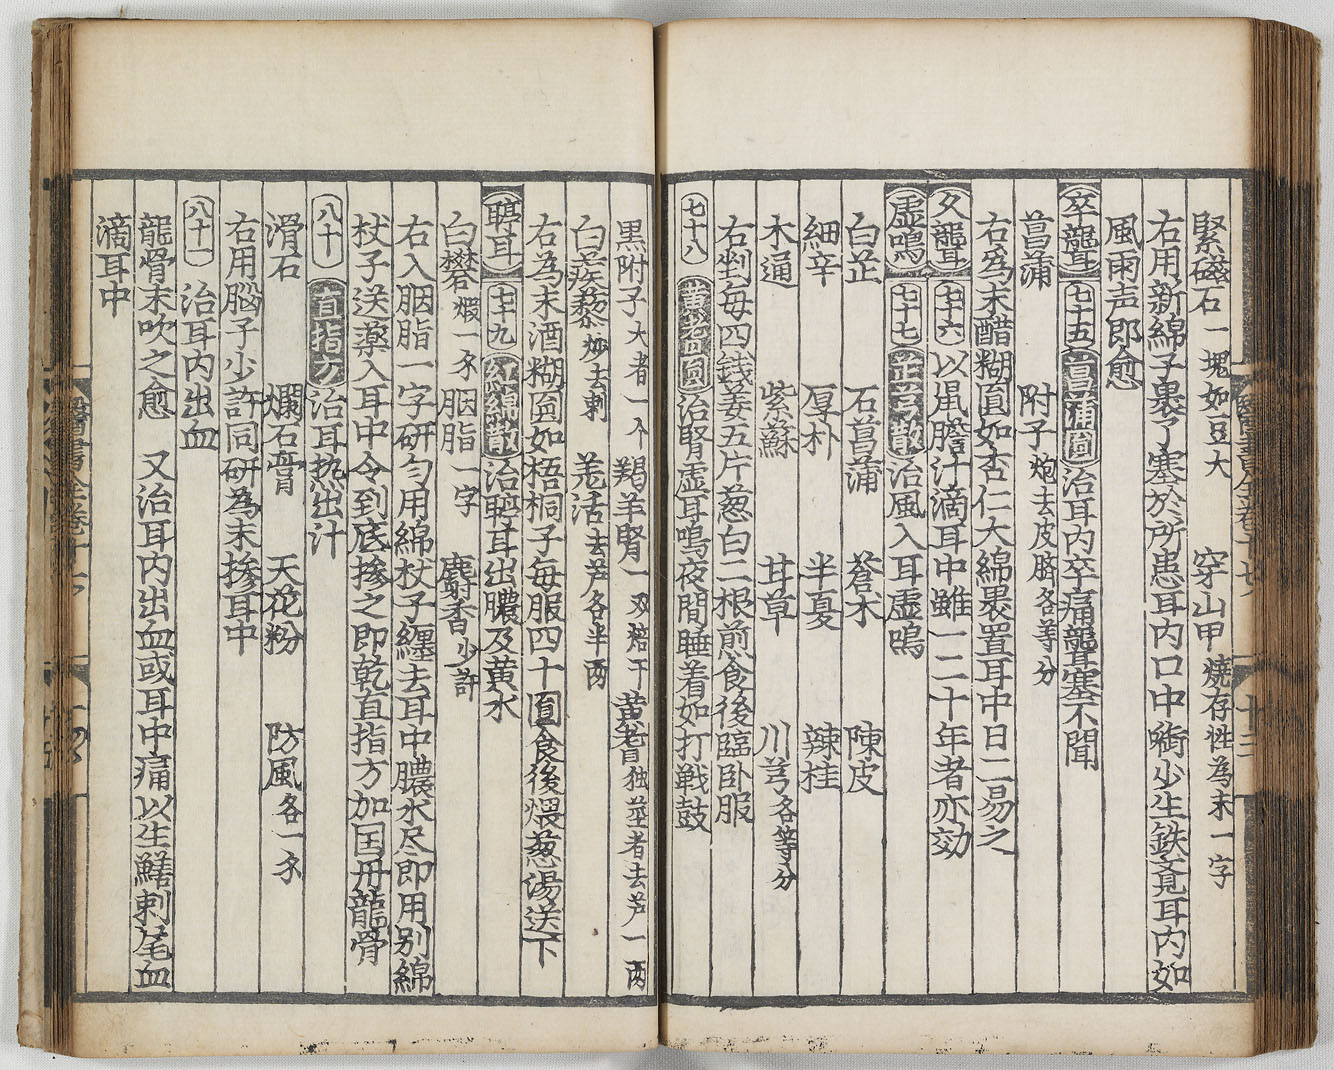 緊磁石一塊如豆大 穿山甲燒存性為末一字
右用新綿子裹了塞於所患耳内口中嚼少生鉄覓耳内如
風雨声即愈
卒聾耳 七十五 菖蒲圎 治耳内卒痛聾塞不聞
菖蒲 附子炮去皮臍各等分
右為末醋糊圎如杏仁大綿裹置耳中日二易之
久聾耳 七十六 以鼠膽汁滴耳中雖一二十年者亦効
虚鳴 七十七 芷芎散 治風入耳虚鳴
白芷 石菖蒲 蒼朮 陳皮
細辛 厚朴 半夏 辣桂
木通 紫蘇 甘草 川芎各等分
右剉毎四錢姜五片葱白二根煎食後臨卧服
七十八 黄耆圎 治腎虚耳鳴夜間睡着如打戦鼓
黒附子大者一个 羯羊腎一双焙干 黄耆独莖者去芦一两
白蒺藜炒去刺 羌活去芦各半两
右為末酒糊圎如梧桐子毎服四十圎食後煨葱湯送下
聤耳 七十九 紅綿散 治聤耳出膿及黄水
白礬煆一钅 胭脂一字 麝香少許
右入胭脂一字研匀用綿杖子纏去耳中膿水尽即用别綿
杖子送薬入耳中令到底掺之即乾直指方加囯丹龍骨
八十 直指方 治耳热出汁
滑石 爛石膏 天花粉 防風各一钅
右用腦子少許同研為末掺耳中
八十一 治耳内出血
龍骨末吹之愈 又治耳内出血或耳中痛以生鱔刺尾血
滴耳中